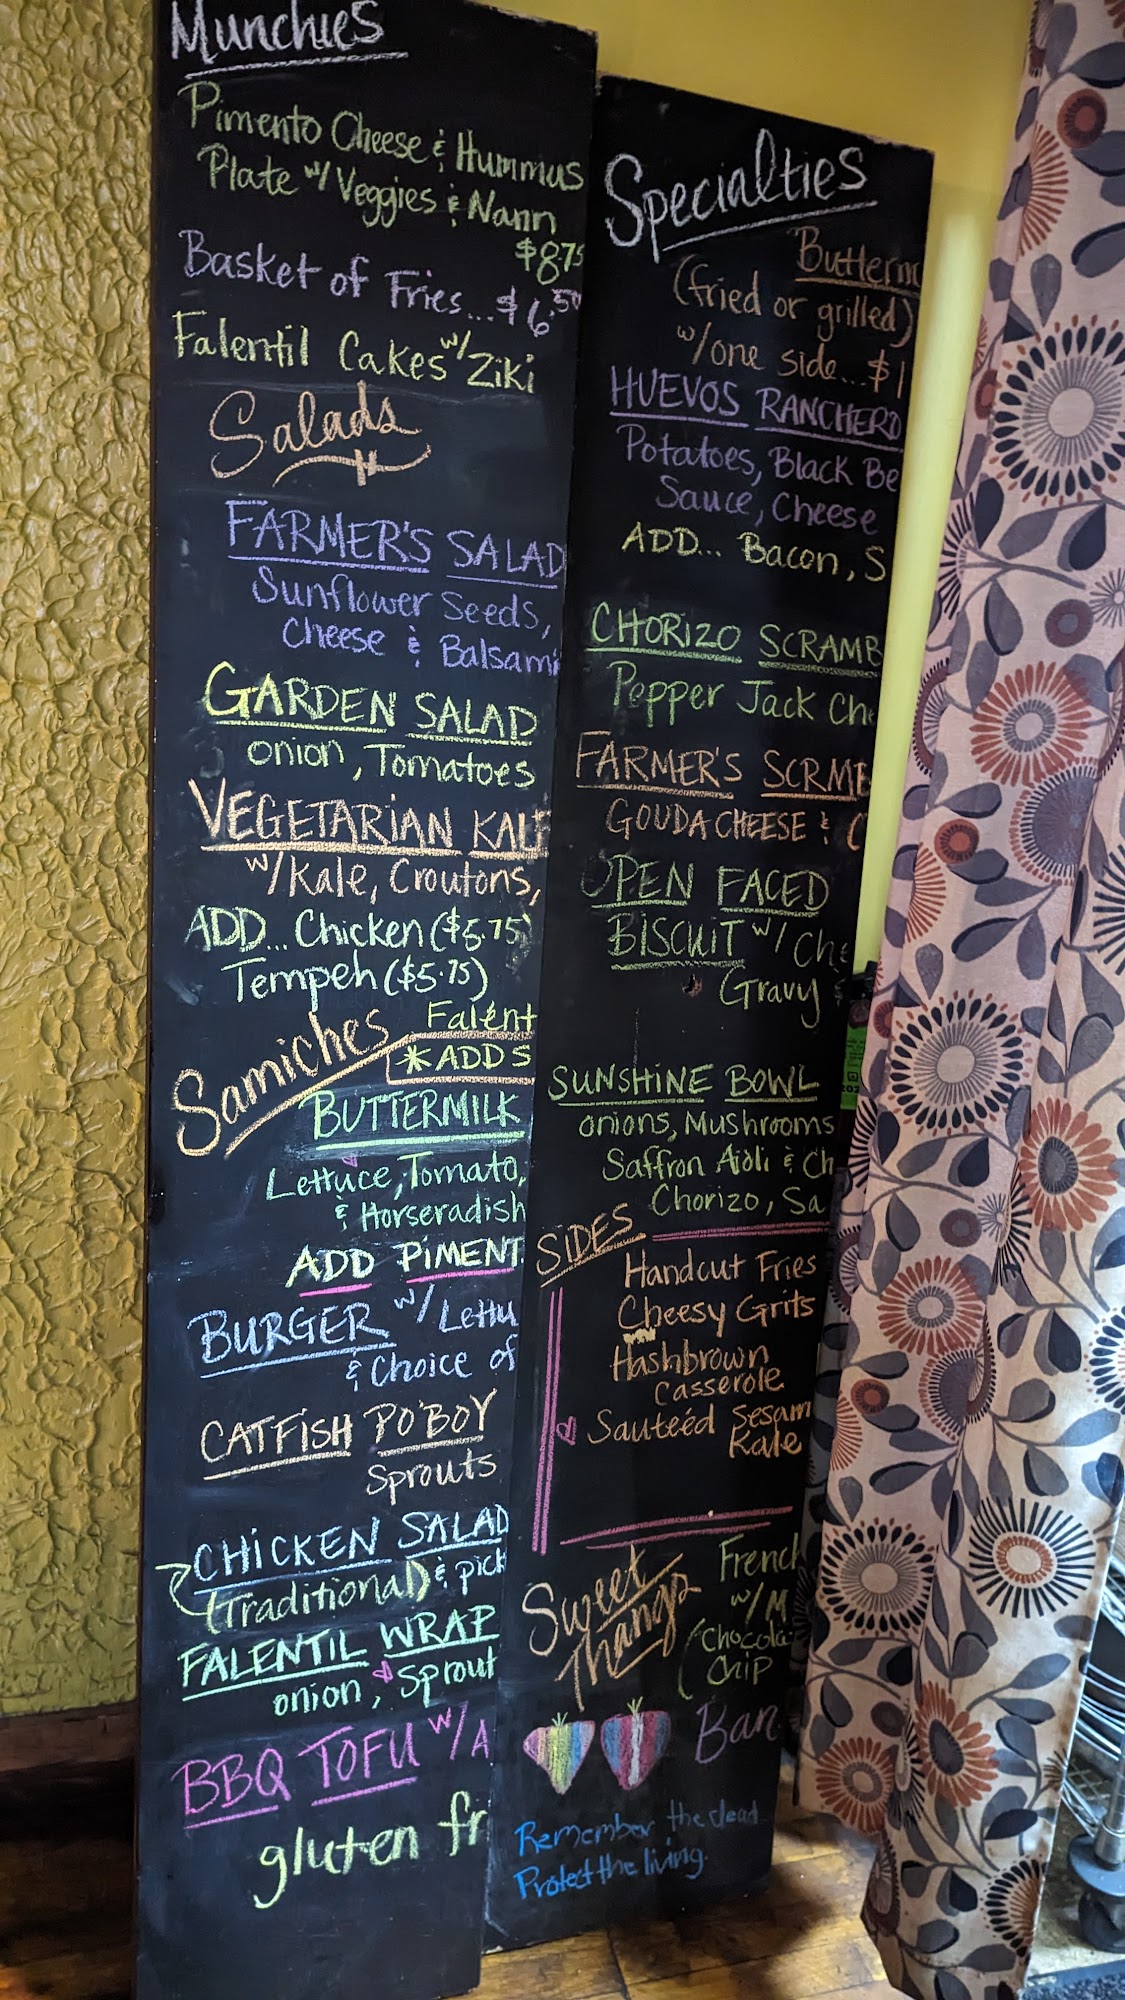 Munchies
Pimento Cheese & Hummus
Plate w/ Veggies & Nann
$8.75
Basket of Fries... $6.50
Falentil Cakes w/ Ziki
Salads
FARMER'S SALAD
Sunflower Seeds,
Cheese & Balsami
GARDEN SALAD
onion, Tomatoes
VEGETARIAN KALE
w/ Kale, Croutons,
ADD... Chicken ($5.75)
Tempeh ($5.75)
Falent
Samiches
*ADD S
BUTTERMILK
Lettuce, Tomato,
& Horseradish
ADD PIMENT
BURGER w/ Lettu
& Choice of
CATFISH PO'BOY
Sprouts
CHICKEN SALAD
(Traditional) & pick
FALENTIL WRAP
onion, Sprout
BBQ TOFU w/ A
gluten fr
Specialties
Butterm
(fried or grilled)
w/ one side... $1
HUEVOS RANCHERO
Potatoes, Black Be
Sauce, Cheese
ADD... Bacon, S
CHORIZO SCRAMB
Pepper Jack Che
FARMER'S SCRMB
GOUDA CHEESE & C
OPEN FACED
BISCUIT w/ Che
Gravy &
SUNSHINE BOWL
onions, Mushrooms
Saffron Aioli & Ch
Chorizo, Sa
SIDES
Handcut Fries
Cheesy Grits
Hashbrown
Casserole
Sauteéd Sesam
Kale
Sweet
Thangs
French
w/ M
(Chocolat
Chip
Ban
Remember the dead
Protect the living.